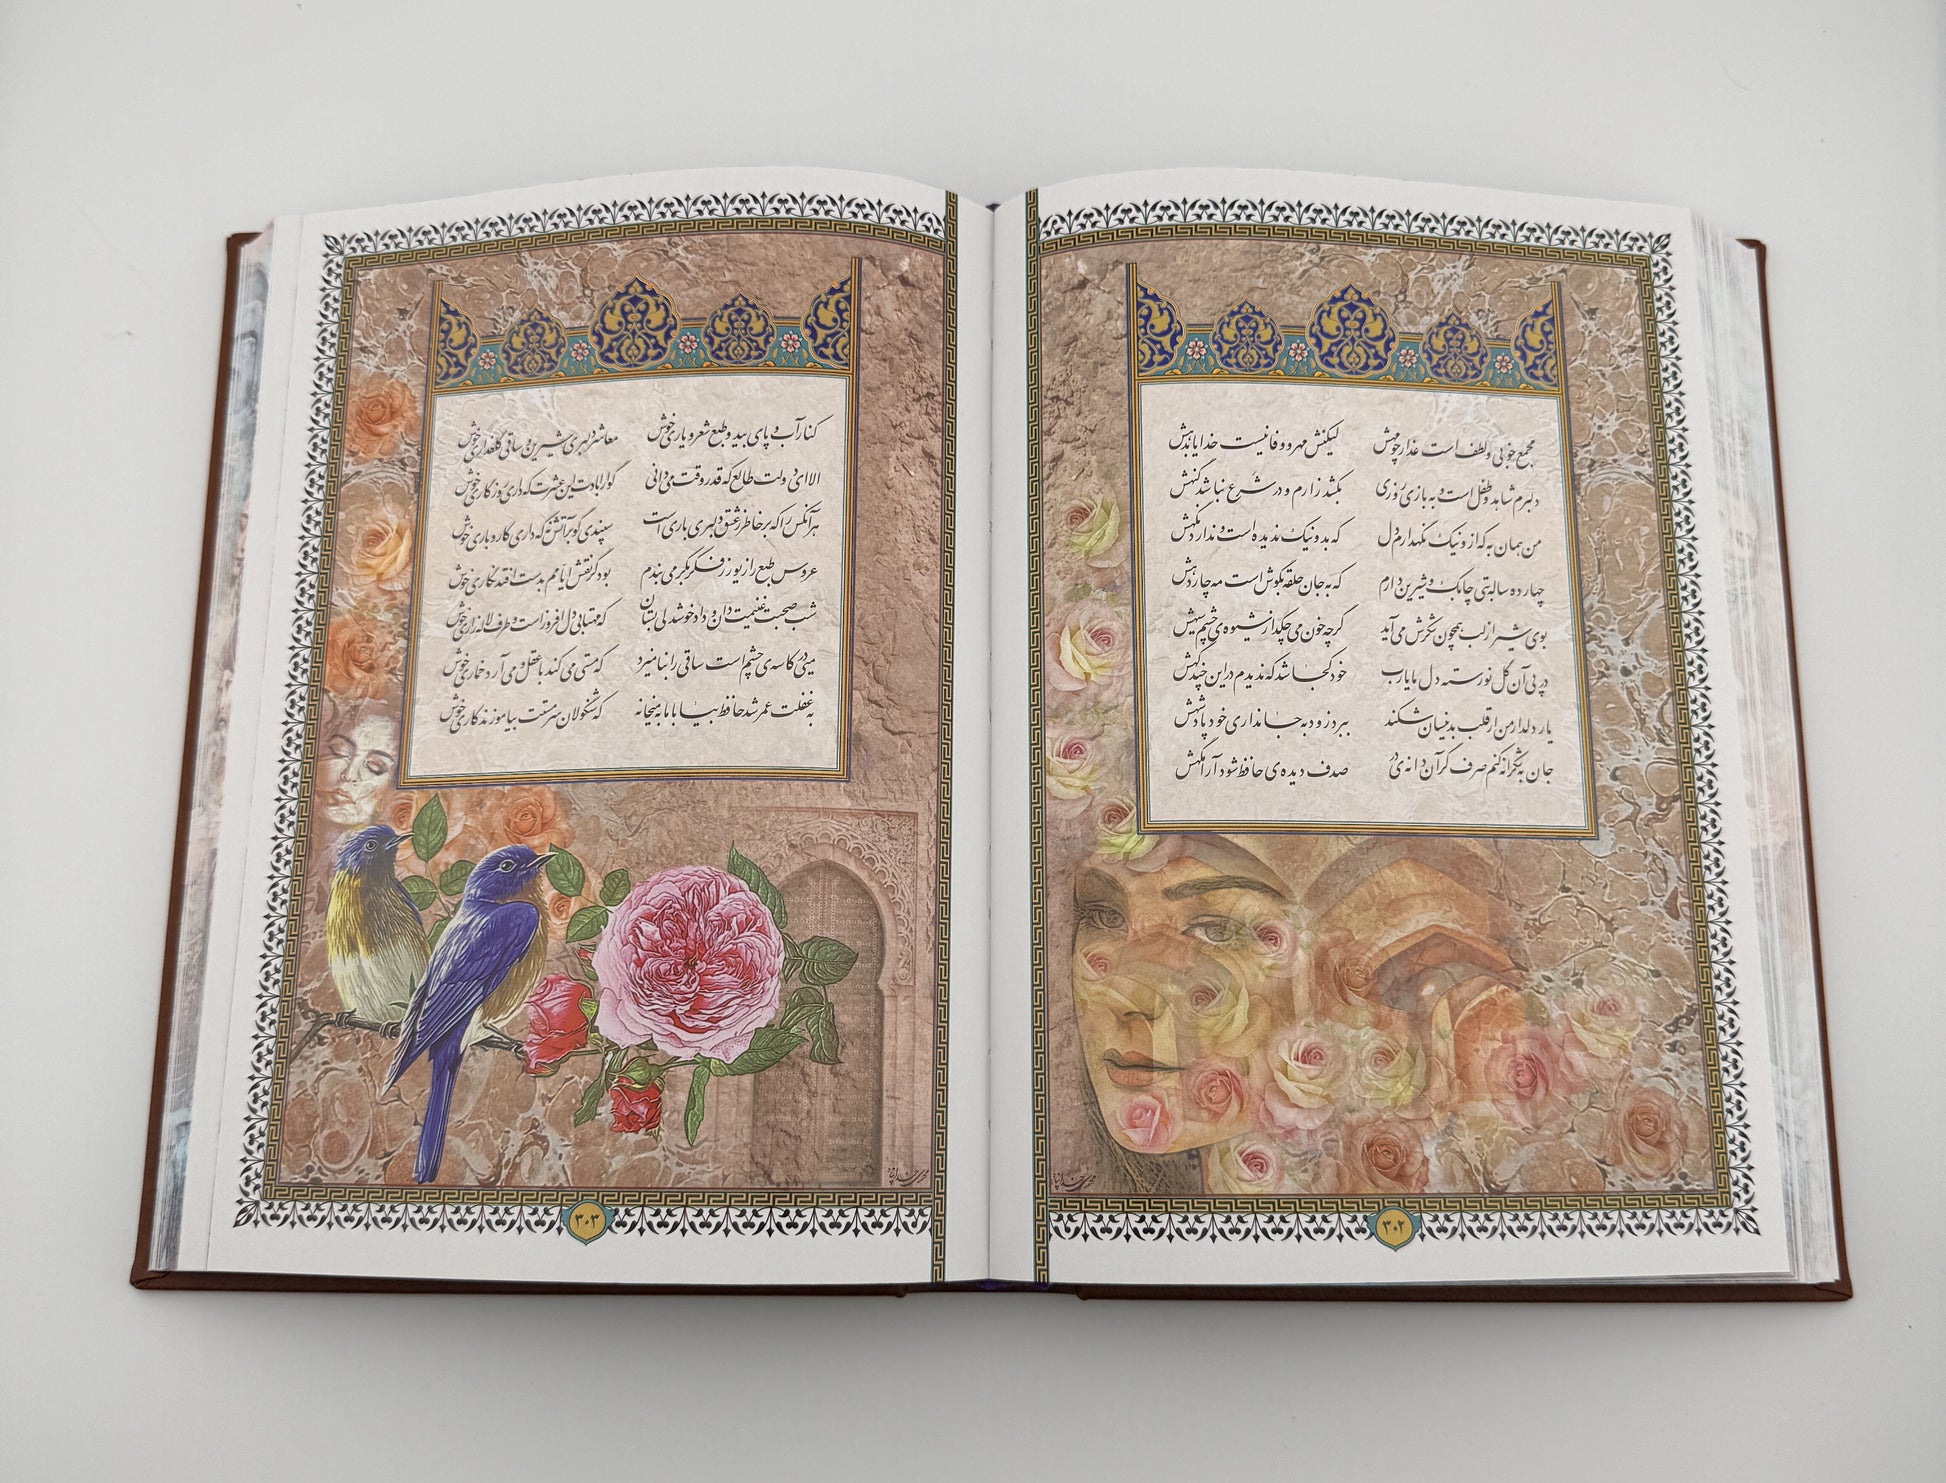 مجمع خوبی و لطف است عذار چو مهش لیکنش مهر و وفا نیست خدایا بدهش
دلبرم شاهد و طفل است و به بازی روزی بکشد زارم و در شرع نباشد گنهش
من همان به که از و نیک نگهدارم دل که بد و نیک ندیده است و ندارد نگهش
چهارده ساله بتی چابک و شیرین دارم که به جان حلقه بگوش است مه چاردهش
بوی شیر از لب همچون شکرش می آید گرچه خون می چکد از شیوه ی چشم سیهش
در پی آن گل نورسته دل ما یارب خود کجا شد که ندیدم در این چند گهش
یار دلدار من ار قلب بدینسان شکند ببرد زود به جانداری خود پادشهش
جان به شکرانه کنم صرف گر آن دانه ی در صدف دیده ی حافظ شود آرامگهش
۳۰۲
کنار آب و پای بید و طبع شعر و یاری خوش معاشر دلبری شیرین و ساقی گلعذاری خوش
الا ای دولت طالع که قدر وقت می دانی گوارا بادت این عشرت که داری روزگاری خوش
هر آنکس را که بر خاطر ز عشق دلبری باری است سپندی گو بر آتش نه که داری کار و باری خوش
عروس طبع را زیور ز فکر بکر می بندم بود کز نقش ایامم بدست افتد نگاری خوش
شب صحبت غنیمت دان و داد خوشدلی بستان که مهتابی دل افروز است و طرف لاله زاری خوش
میی در کاسه ی چشم است ساقی را نبامیزد که مستی می کند با عقل و می آرد خماری خوش
به غفلت عمر شد حافظ بیا با ما به میخانه که شنگولان سرمستت بیاموزند کاری خوش
۳۰۳